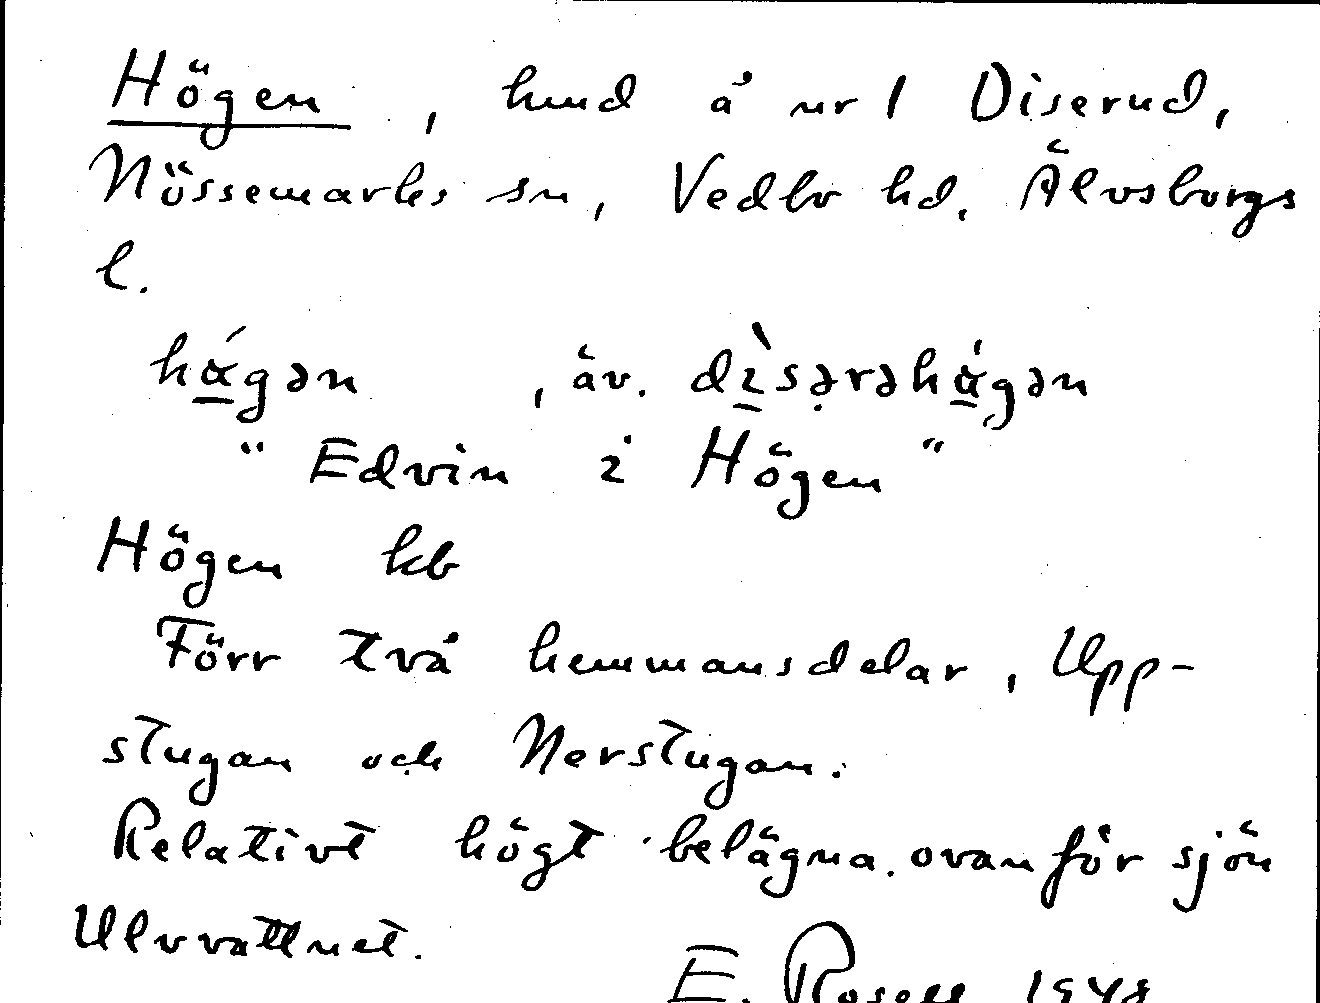 Högen, hmd å nr 1 Diserud,
Nössemarks sn, Vedbo hd, Älvsborgs
l.
hά̲gən, äv. dɩ̲̀sə̣rəhά̲gən
" Edvin i Högen "
Högen kb
Förr två hemmansdelar, Upp-
stugan och Nerstugan.
Relativt högt belägna. ovanför sjön
Ulvvattnet.
E. Rosell 1948